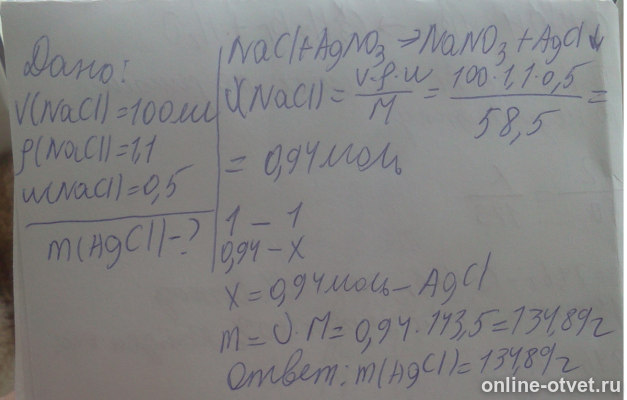 Дано:
V(NaCl)=100мл
ρ(NaCl)=1,1
w(NaCl)=0,5
m(AgCl)-?
NaCl+AgNO₃→NaNO₃+AgCl↓
ν(NaCl)=V·ρ·w/M=100·1,1·0,5/58,5=
=0,94моль
1 – 1
0,94 – x
x=0,94моль – AgCl
m=ν·M=0,94·143,5=134,89г
Ответ: m(AgCl)=134,89г
online-otvet.ru